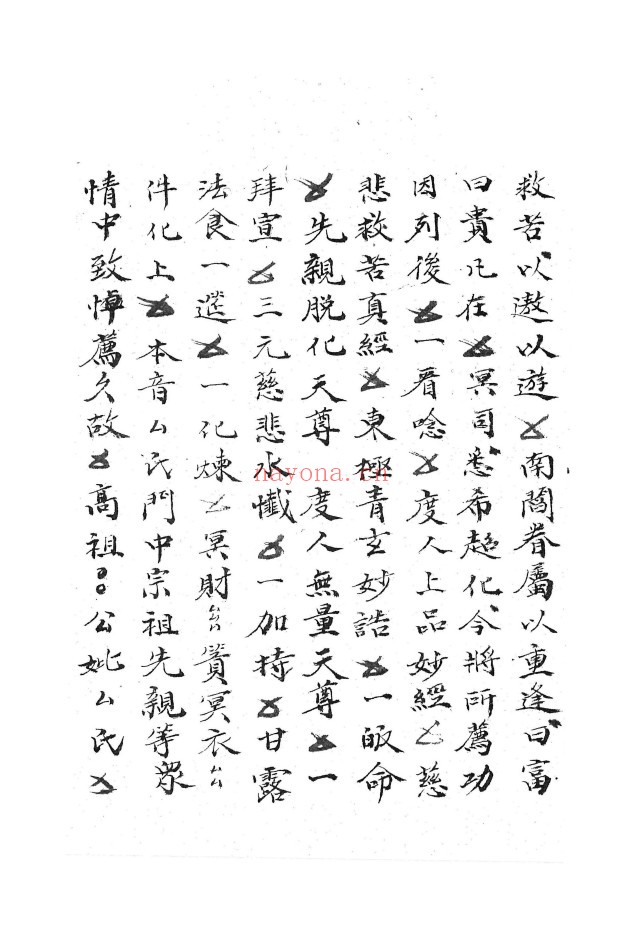 救苦以遨以遊乂南閻眷屬以重逢曰富
曰貴凡在乂冥司悉希超化今將所薦功
因列後乂一看唸乂度人上品妙經乂慈
悲救苦真經乂東極青玄妙誥乂一皈命
乂先親脱化天尊 度人無量天尊乂一
拜宣乂三元慈悲水懺乂一加持乂甘露
法食一筵乂一化煉乂冥財厶賫冥衣厶
件化上乂本音厶氏門中宗祖先親等眾
情中致悼薦久故乂高祖公妣厶氏乂
nayona.cn